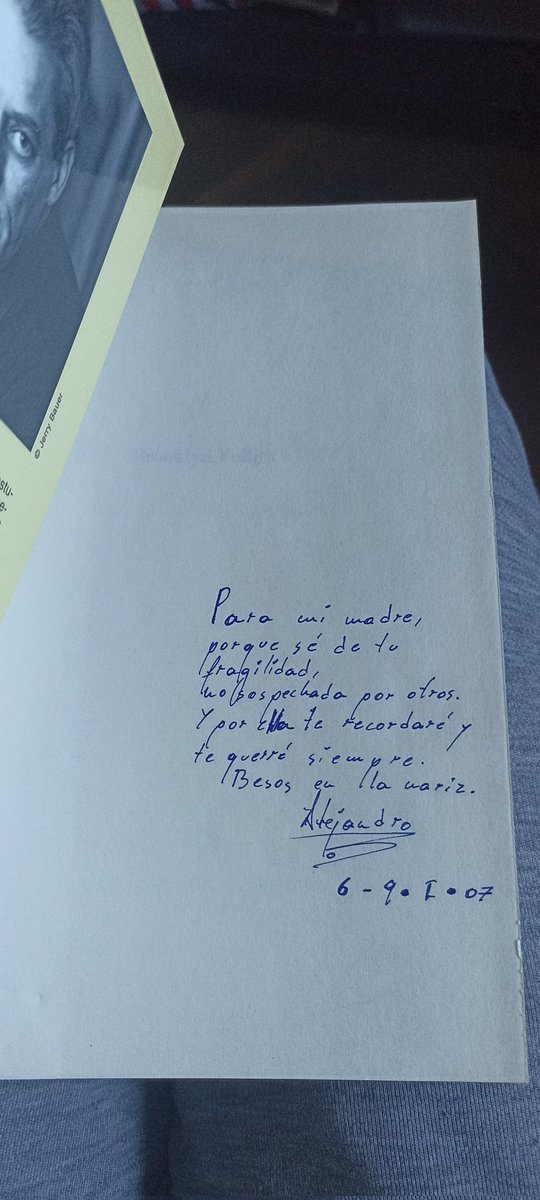 © Jerry Bauer
stu-
e-
Brooklyn Follies
Para mi madre,
porque sé de tu
fragilidad,
no sospechada por otros.
Y por ella te recordaré y
te querré siempre.
Besos en lla nariz.
Alejandro
6 - 9 • I • 07